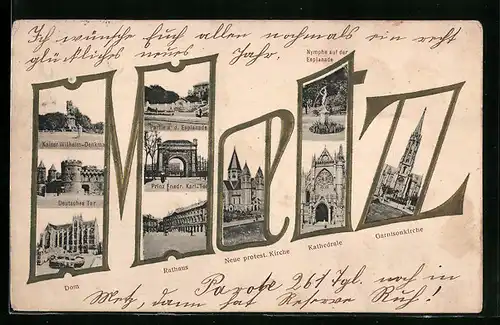 Ich wünsche Euch allen nochmals ein recht
glückliches neues Jahr.
Nymphe auf der
Esplanade
Metz
Kaiser Wilhelm-Denkmal
Partie a. d. Esplanade
Deutsches Tor
Prinz Friedr. Karl-Tor
Dom
Rathaus
Neue protest. Kirche
Kathedrale
Garnisonkirche
Parole 261 Tgl. noch in
Metz, dann hat Reserve Ruh!